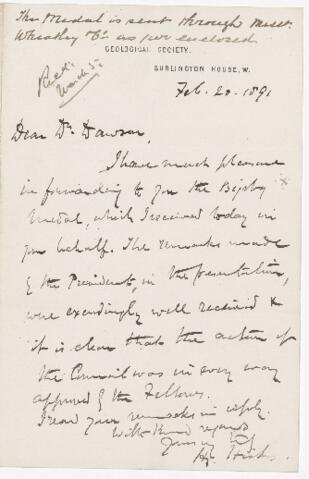 The Medal is sent through Messrs.
Wheatley & Co as per enclosed
GEOLOGICAL SOCIETY.
BURLINGTON HOUSE, W.
Recd.
March 5.
Feb. 20. 1891
Dear Dr. Dawson,
I have much pleasure
in forwarding to you the Bigsby
Medal, which I received today in
your behalf. The remarks made
by the President, in the presentation,
were exceedingly well received &
it is clear that the action of
the Council was in every way
approved by the Fellows.
I read your remarks in reply.
With kind regards
Yours
Hy. Hicks.